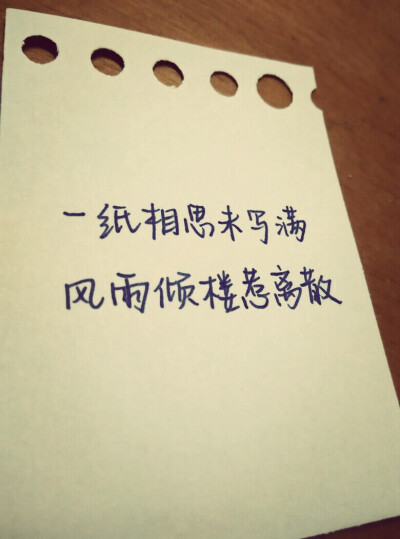 一纸相思未写满
风雨倾楼惹离散